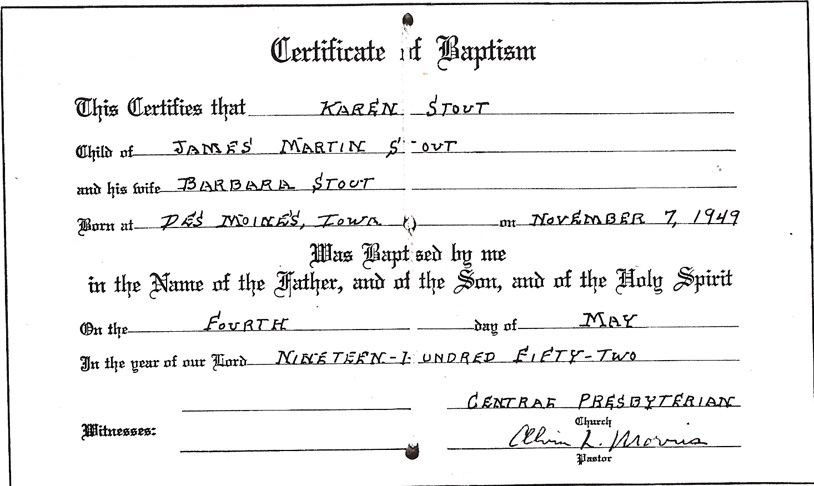 Certificate of Baptism
This Certifies that KAREN STOUT
Child of JAMES MARTIN STOUT
and his wife BARBARA STOUT
Born at DES MOINES, IOWA on NOVEMBER 7, 1949
Was Baptised by me
in the Name of the Father, and of the Son, and of the Holy Spirit
On the FOURTH day of MAY
In the year of our Lord NINETEEN-HUNDRED FIFTY-TWO
CENTRAL PRESBYTERIAN
Church
Witnesses:
Alvin L. Morris
Pastor